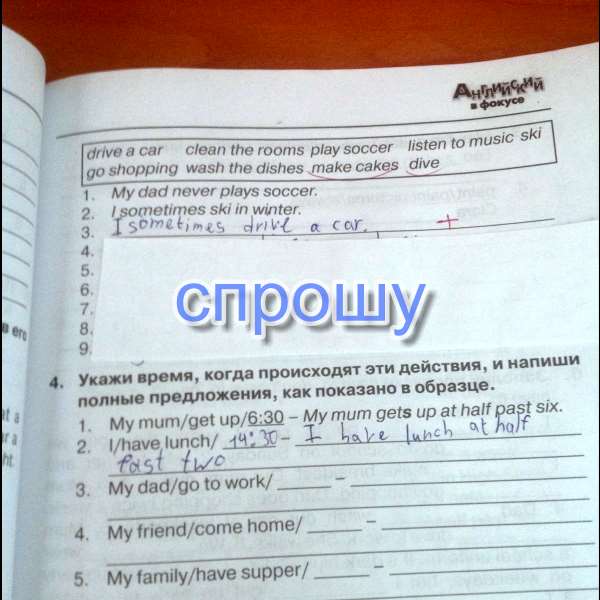 Английский
в фокусе
drive a car clean the rooms play soccer listen to music ski
go shopping wash the dishes make cakes dive
1. My dad never plays soccer.
2. I sometimes ski in winter.
3. I sometimes drive a car. +
4.
5.
6.
7.
8.
9.
спрошу
в его
4. Укажи время, когда происходят эти действия, и напиши
полные предложения, как показано в образце.
1. My mum/get up/6:30 – My mum gets up at half past six.
2. I/have lunch/ 14:30 – I have lunch at half
past two
3. My dad/go to work/ –
4. My friend/come home/ –
5. My family/have supper/ –